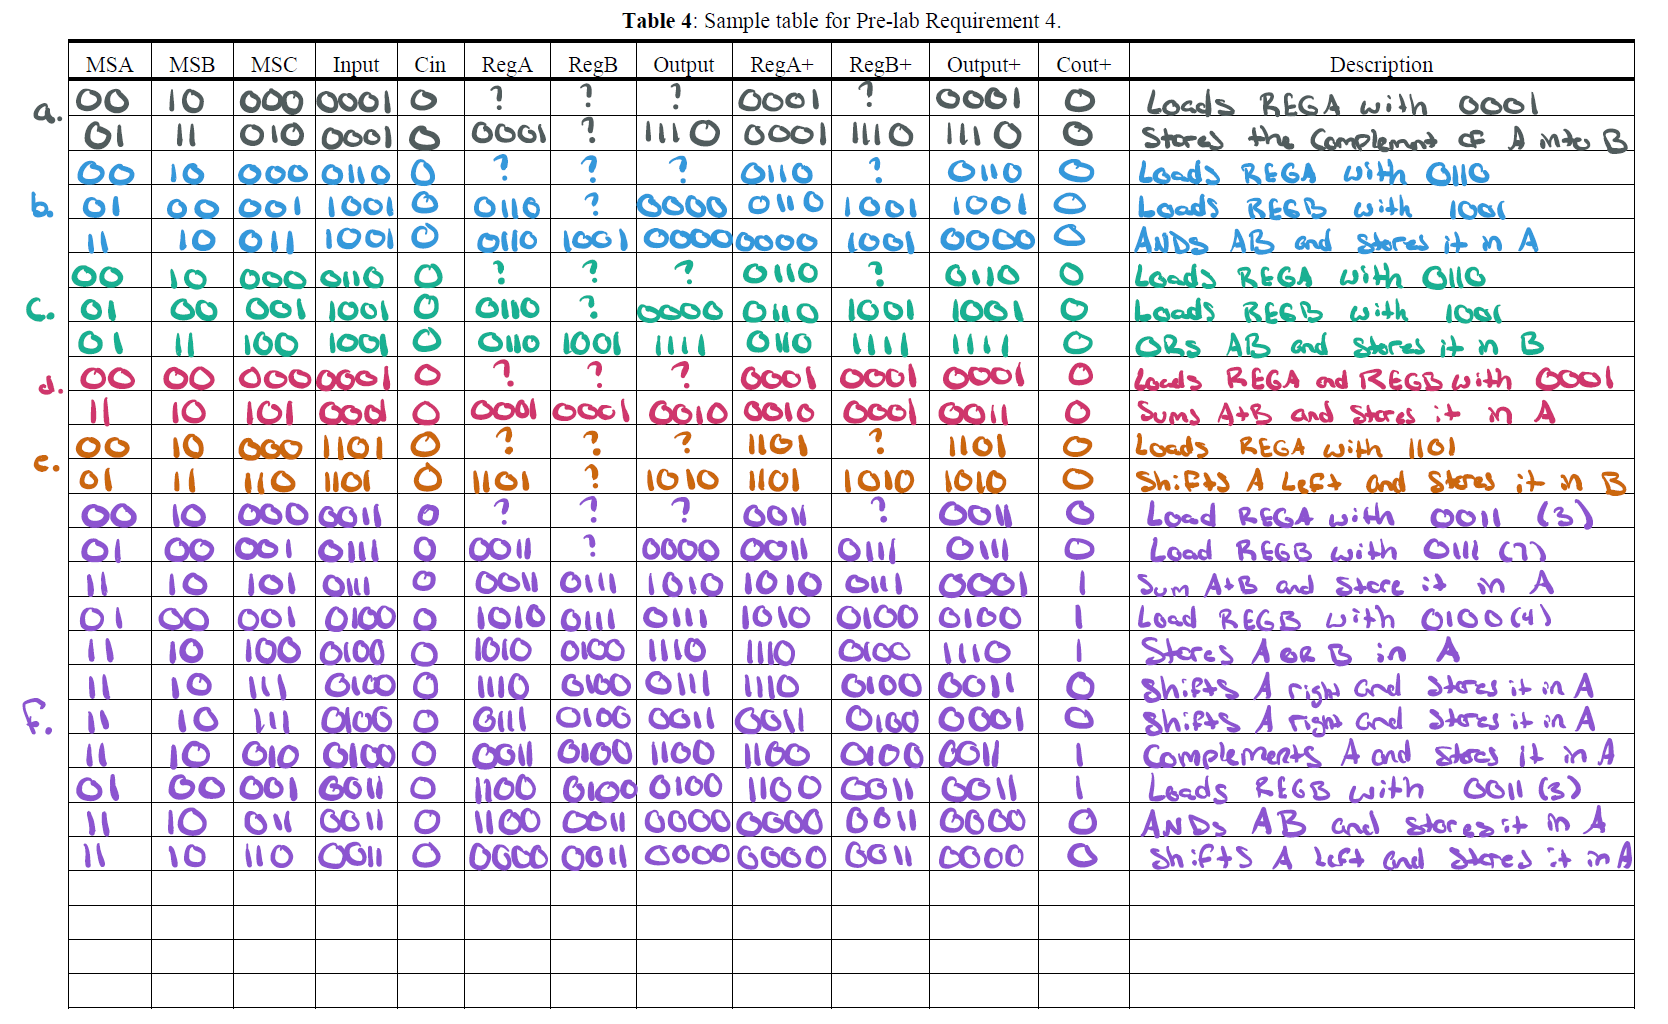 Table 4: Sample table for Pre-lab Requirement 4.
MSA MSB MSC Input Cin RegA RegB Output RegA+ RegB+ Output+ Cout+ Description
a. 00 10 000 0001 0 ? ? ? 0001 ? 0001 0 Loads REGA with 0001
01 11 010 0001 0 0001 ? 1110 0001 1110 1110 0 Stores the Complement of A into B
00 10 000 0110 0 ? ? ? 0110 ? 0110 0 Loads REGA with 0110
b. 01 00 001 1001 0 0110 ? 0000 0110 1001 1001 0 Loads REGB with 1001
11 10 011 1001 0 0110 1001 0000 0000 1001 0000 0 ANDs AB and stores it in A
00 10 000 0110 0 ? ? ? 0110 ? 0110 0 Loads REGA with 0110
C. 01 00 001 1001 0 0110 ? 0000 0110 1001 1001 0 Loads REGB with 1001
01 11 100 1001 0 0110 1001 1111 0110 1111 1111 0 ORs AB and stores it in B
d. 00 00 000 0001 0 ? ? ? 0001 0001 0001 0 Loads REGA and REGB with 0001
11 10 101 0001 0 0001 0001 0010 0010 0001 0011 0 Sums A+B and stores it in A
e. 00 10 000 1101 0 ? ? ? 1101 ? 1101 0 Loads REGA with 1101
01 11 110 1101 0 1101 ? 1010 1101 1010 1010 0 Shifts A Left and stores it in B
00 10 000 0011 0 ? ? ? 0011 ? 0011 0 Load REGA with 0011 (3)
01 00 001 0111 0 0011 ? 0000 0011 0111 0111 0 Load REGB with 0111 (7)
11 10 101 0111 0 0011 0111 1010 1010 0111 0001 1 Sum A+B and store it in A
01 00 001 0100 0 1010 0111 0111 1010 0100 0100 1 Load REGB with 0100 (4)
11 10 100 0100 0 1010 0100 1110 1110 0100 1110 1 Stores A OR B in A
11 10 111 0100 0 1110 0100 0111 1110 0100 0011 0 Shifts A right and stores it in A
F. 11 10 111 0100 0 0111 0100 0011 0011 0100 0001 0 Shifts A right and stores it in A
11 10 010 0100 0 0011 0100 1100 1100 0100 0011 1 Complements A and stores it in A
01 00 001 0011 0 1100 0100 0100 1100 0011 0011 1 Loads REGB with 0011 (3)
11 10 011 0011 0 1100 0011 0000 0000 0011 0000 0 ANDs AB and stores it in A
11 10 110 0011 0 0000 0011 0000 0000 0011 0000 0 Shifts A left and stores it in A